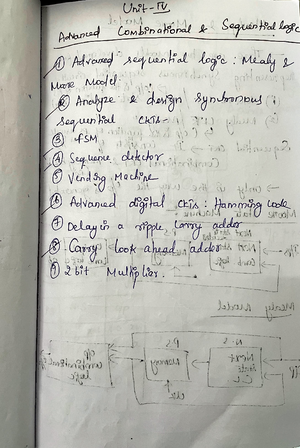 Unit-IV
Advanced Combinational & Sequential logic
① Advanced sequential logic : Mealy &
Moore Model.
② Analyze & design synchronous
sequential ckts.
③ FSM
④ Sequence detector
⑤ Vending Machine
⑥ Advanced digital ckts : Hamming code
⑦ Delay in a ripple carry adder
⑧ Carry look ahead adder
⑨ 2 bit Multiplier.